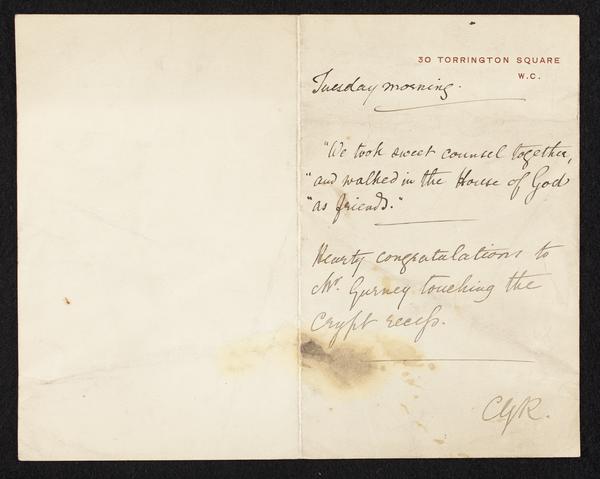 30 TORRINGTON SQUARE
W.C.
Tuesday morning.
"We took sweet counsel together,
"and walked in the House of God
"as friends."
Hearty congratulations to
Mr. Gurney touching the
Crypt recess.
CGR.